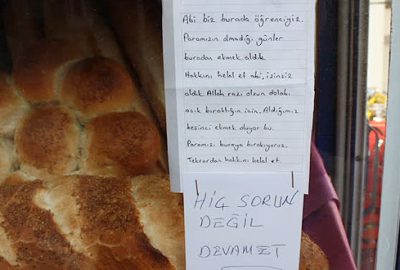 Abi biz burada öğrenciyiz.
Paramızın olmadığı günler
buradan ekmek aldık
Hakkını helal et abi, izinsiz
aldık Allah razı olsun dolabı
açık bıraktığın için. Aldığımız
besinci ekmek oluyor bu.
Paramızı buraya bırakıyoruz.
Tekrardan hakkını helal et.
HİÇ SORUN
DEĞİL
DEVAM ET